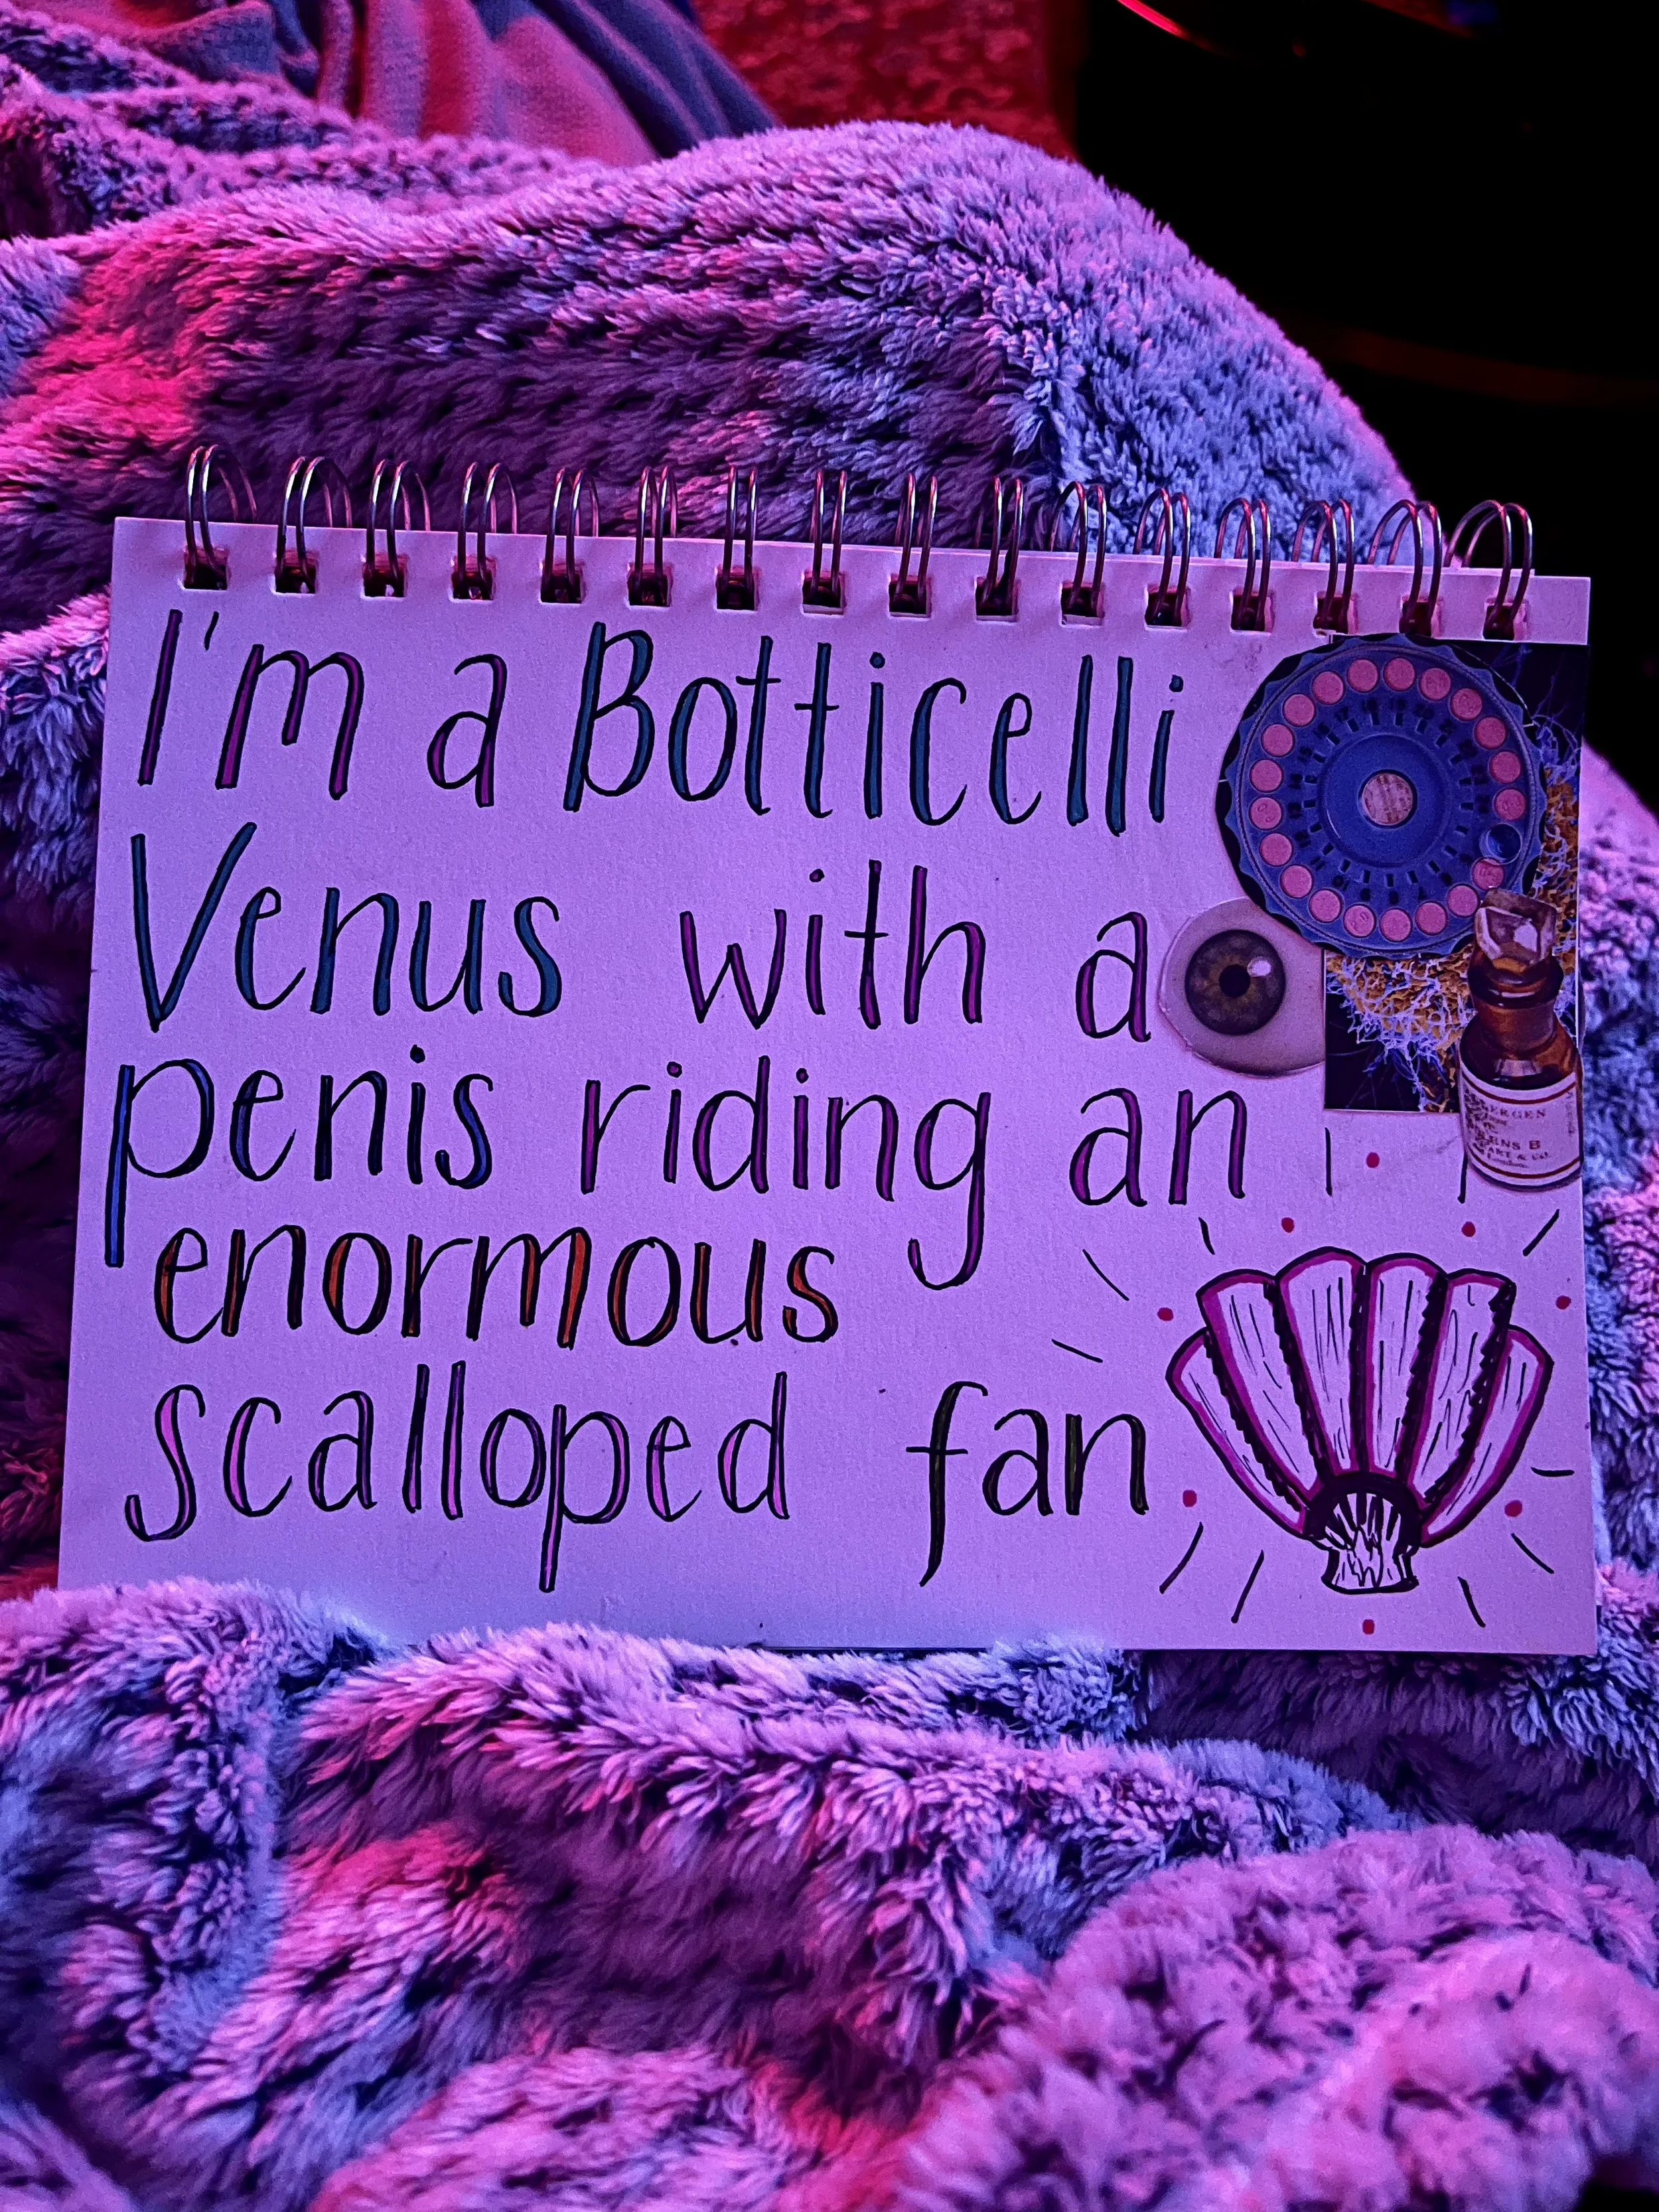 I'm a Botticelli
Venus with a
penis riding an
enormous
scalloped fan